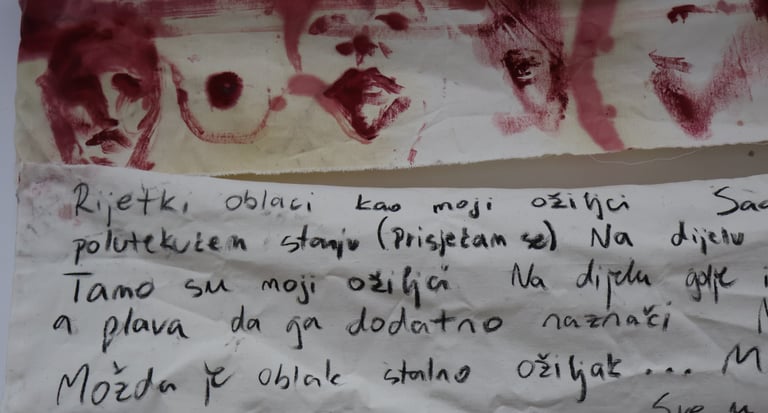 Rijetki oblaci kao moji ožiljci Sad
polutekućem stanju (Prisjećam se) Na dijelu
Tamo su moji ožiljci Na dijelu gdje i
a plava da ga dodatno naznači
Možda je oblak stalno ožiljak... M
Sve u